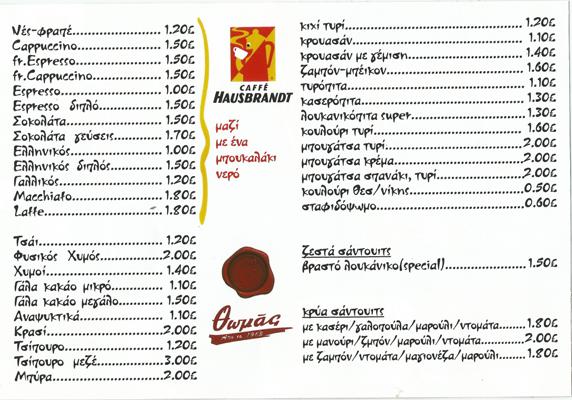 Νές-φραπέ.................1.20€
Cappuccino.................1.50€
fr.Espresso.................1.50€
fr.Cappuccino.................1.50€
Espresso.................1.00€
Espresso διπλό.................1.50€
Σοκολάτα.................1.50€
Σοκολάτα γεύσεις.................1.70€
Ελληνικός.................1.00€
Ελληνικός διπλός.................1.50€
Γαλλικός.................1.20€
Macchiato.................1.80€
Laffe.................1.80€
Τσάι.................1.20€
Φυσικός Χυμός.................2.00€
Χυμοί.................1.40€
Γάλα κακάο μικρό.................1.10€
Γάλα κακάο μεγάλο.................1.50€
Αναψυκτικά.................1.10€
Κρασί.................2.00€
Τσίπουρο.................1.20€
Τσίπουρο μεζέ.................3.00€
Μπύρα.................2.00€
CAFFÈ
HAUSBRANDT
μαζί
με ένα
μπουκαλάκι
νερό
Θωμάς
από το 1958
κιχί τυρί.................1.20€
κρουασάν.................1.10€
κρουασάν με γέμιση.................1.40€
ζαμπόν-μπέικον.................1.60€
τυρόπιτα.................1.10€
κασερόπιτα.................1.30€
λουκανικόπιτα super.................1.30€
κουλούρι τυρί.................1.60€
μπουγάτσα τυρί.................2.00€
μπουγάτσα κρέμα.................2.00€
μπουγάτσα σπανάκι, τυρί.................2.00€
κουλούρι θεσ/νίκης.................0.50€
σταφιδόψωμο.................0.60€
ζεστά σάντουιτς
βραστό λουκάνικο(special).................1.50€
κρύα σάντουιτς
με κασέρι/γαλοπούλα/μαρούλι/ντομάτα.......1.80€
με μανούρι/ζμπόν/μαρούλι/ντομάτα.......2.00€
με ζαμπόν/ντομάτα/μαγιονέζα/μαρούλι.......1.80€